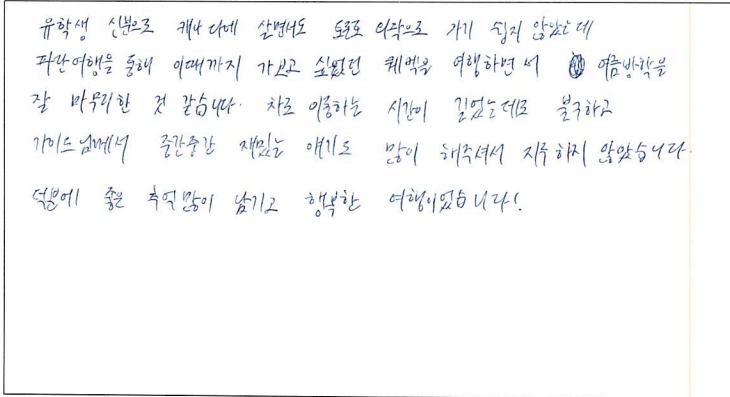 유학생 신분으로 캐나다에 살면서도 토론토 외곽으로 가기 쉽지 않았는데
파란여행을 통해 이때까지 가보고 싶었던 퀘벡을 여행하면서 여름방학을
잘 마무리한 것 같습니다. 차로 이동하는 시간이 길었는데도 불구하고
가이드님께서 중간중간 재밌는 얘기도 많이 해주셔서 지루하지 않았습니다.
덕분에 좋은 추억 많이 남기고 행복한 여행이었습니다!